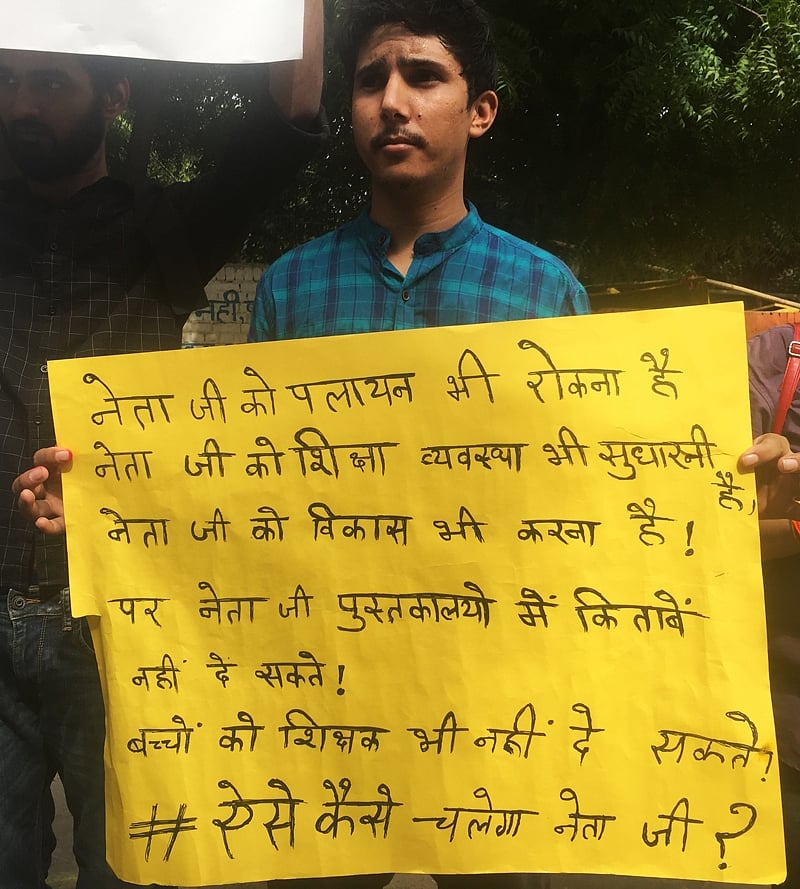 नही,
नेता जी को पलायन भी रोकना है
नेता जी को शिक्षा व्यवस्था भी सुधारनी
है,
नेता जी को विकास भी करना है!
पर नेता जी पुस्तकालयो में किताबें
नहीं दे सकते!
बच्चों को शिक्षक भी नहीं दे सकते!
# ऐसे कैसे चलेगा नेता जी?